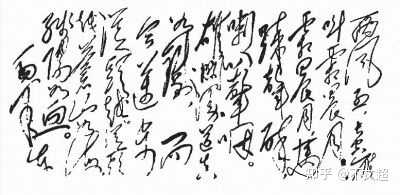 西风烈，长空雁
叫霜晨月。
霜晨月，马
蹄声碎，
喇叭声咽。
雄关漫道真
如铁，而
今迈步
从头越。从头
越，苍山如海，
残阳如血。
知乎